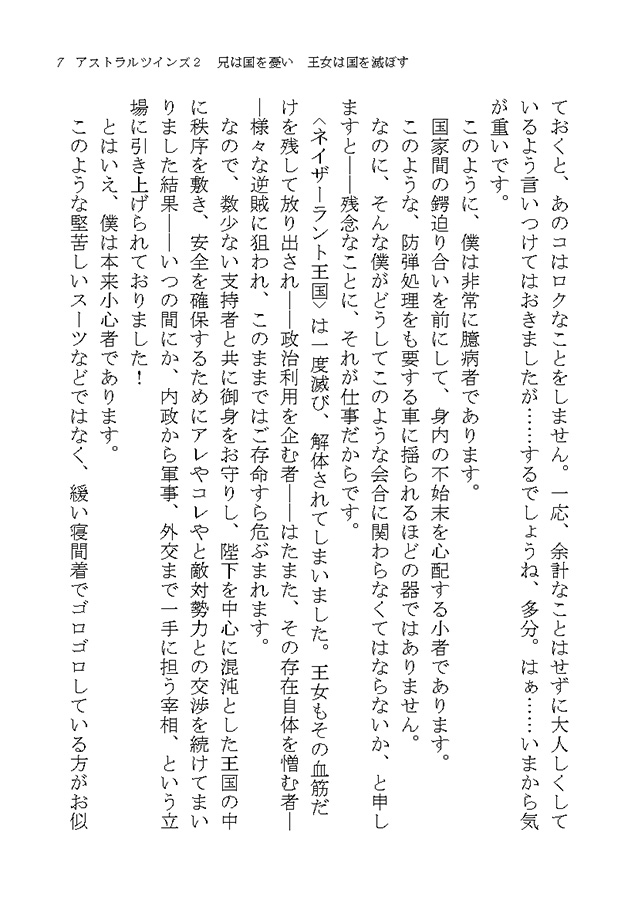 7　アストラルツインズ２　兄は国を憂い　王女は国を滅ぼす
ておくと、あのコはロクなことをしません。一応、余計なことはせずに大人しくして
いるよう言いつけてはおきましたが……するでしょうね、多分。はぁ……いまから気
が重いです。
このように、僕は非常に臆病者であります。
国家間の鍔迫り合いを前にして、身内の不始末を心配する小者であります。
このような、防弾処理をも要する車に揺られるほどの器ではありません。
なのに、そんな僕がどうしてこのような会合に関わらなくてはならないか、と申し
ますと――残念なことに、それが仕事だからです。
〈ネイザーラント王国〉は一度滅び、解体されてしまいました。王女もその血筋だ
けを残して放り出され――政治利用を企む者――はたまた、その存在自体を憎む者―
―様々な逆賊に狙われ、このままではご存命すら危ぶまれます。
なので、数少ない支持者と共に御身をお守りし、陛下を中心に混沌とした王国の中
に秩序を敷き、安全を確保するためにアレやコレやと敵対勢力との交渉を続けてまい
りました結果――いつの間にか、内政から軍事、外交まで一手に担う宰相、という立
場に引き上げられておりました！
とはいえ、僕は本来小心者であります。
このような堅苦しいスーツなどではなく、緩い寝間着でゴロゴロしている方がお似